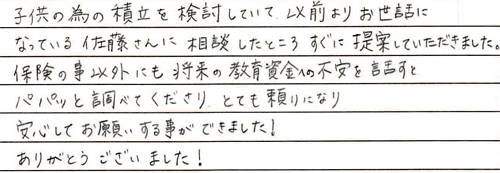 子供の為の積立を検討していて、以前よりお世話に
なっている佐藤さんに相談したところすぐに提案していただきました。
保険の事以外にも将来の教育資金への不安を話すと
パパッと調べてくださり、とても頼りになり
安心してお願いする事ができました！
ありがとうございました！